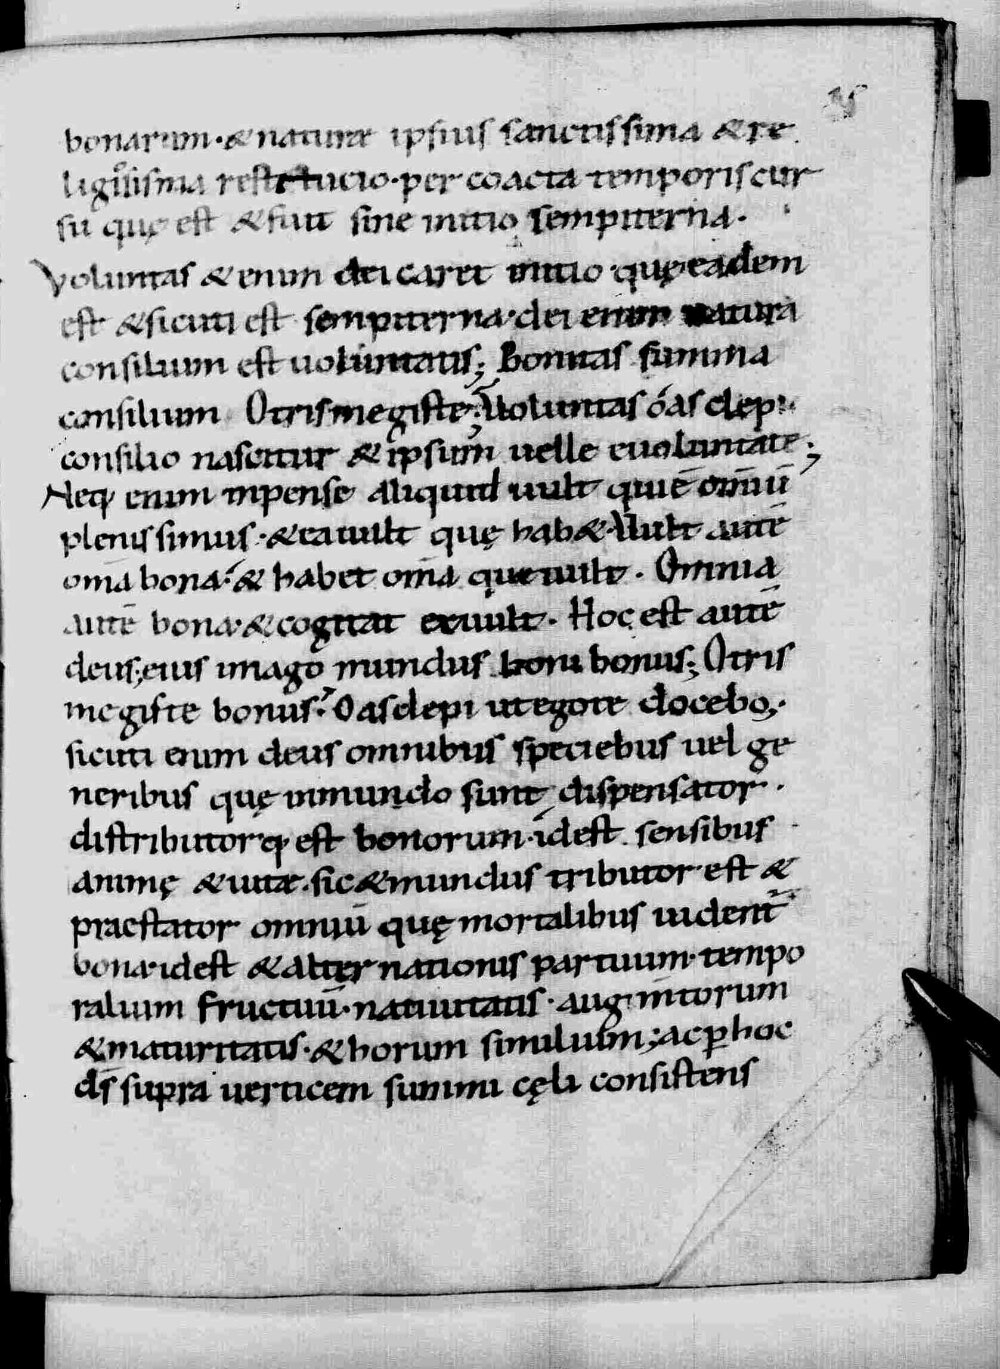 bonarum·&naturæ ipsius sanctissima &re
ligiosissima restitucio·per coacta temporis cur
su quę est &fuit sine initio sempiterna·
Voluntas &enim dei caret initio·quę eadem
est &sicuti est sempiterna·dei enim natura
consilium est uoluntatis; Bonitas summa
consilium Otrismegiste; Uoluntas óasclepi
consilio nascitur &ipsum uelle euoluntate;
Neq enim inpense aliquid uult quiē omiū
plenissimus·&ea uult quę hab&·Uult autē
om̄a bona·& habet om̄a quæ uult· Omnia
autē bona·&cogitat &uult· Hoc est autē
deus;eius imago mundus boni bonus; Otris
megiste bonus? Oasclepi ut ego te docebo·
sicuti enim deus omnibus speciebus uel ge
neribus quę inmundo sunt dispensator·
distributorq est bonorum·idest sensibus
animę &uitæ·sic &mundus tributor est &
praestator omniū quę mortalibus uident̄
bona·idest &alternationis partuum·tempo
ralium fructuū·natiuitatis·augmtorum
&maturitatis·&horum similium;ac p̱ hoc
ds̄ supra uerticem summi cęli consistens